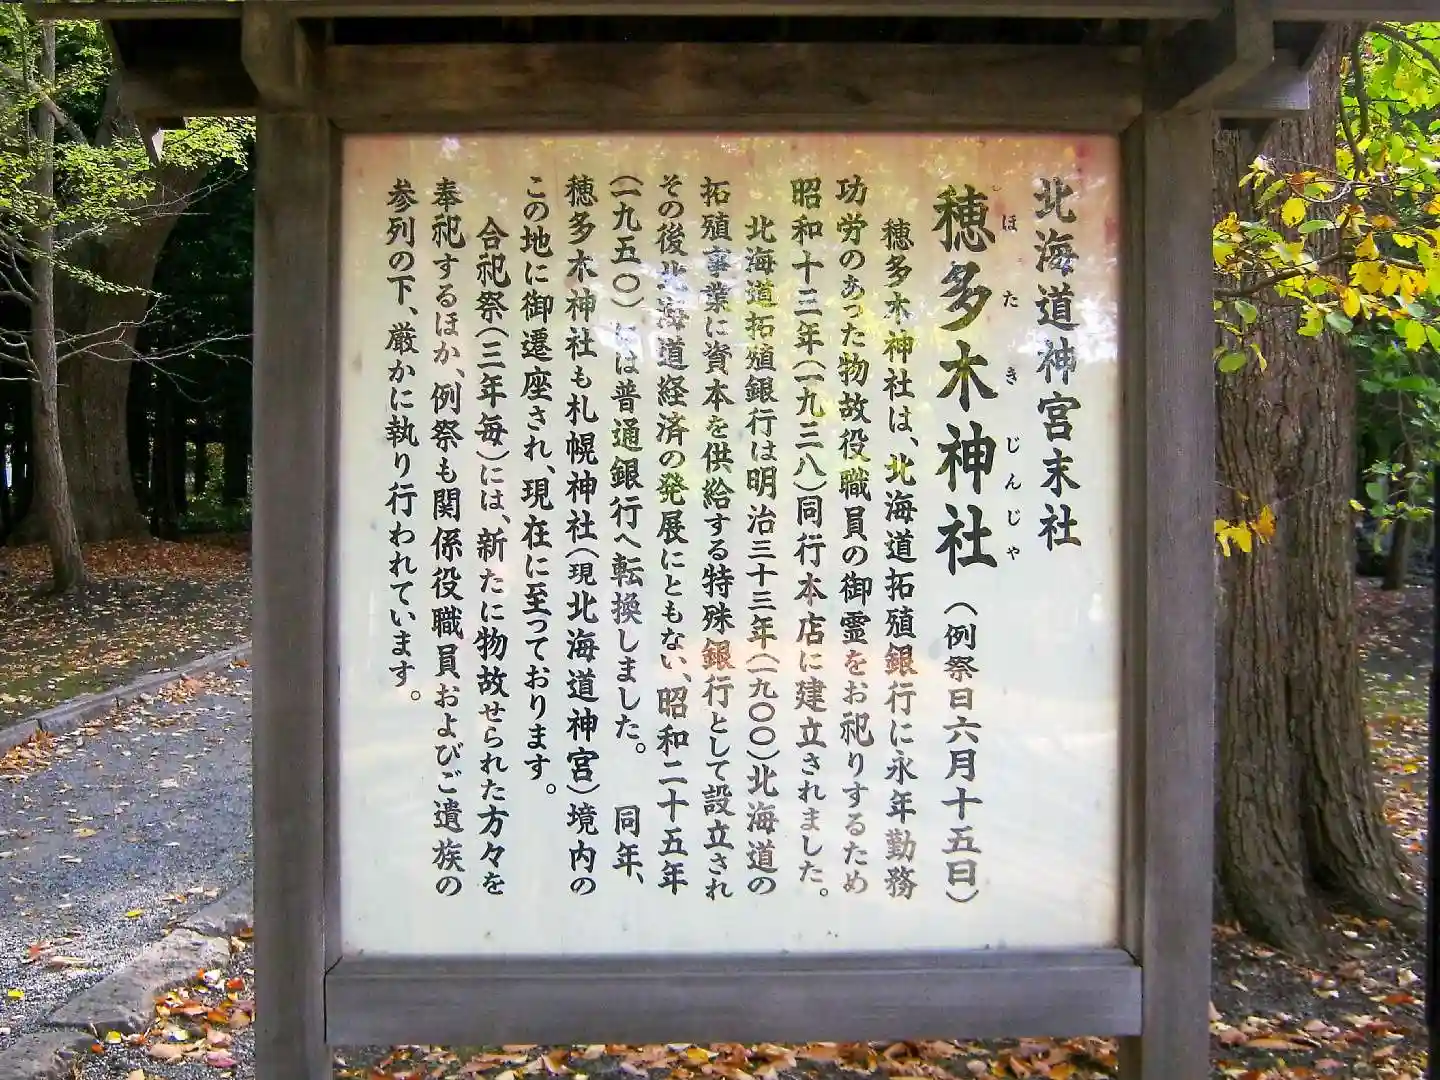 北海道神宮末社
穂多木神社（例祭日六月十五日）
ほたきじんじゃ
穂多木神社は、北海道拓殖銀行に永年勤務
功労のあった物故役職員の御霊をお祀りするため
昭和十三年（一九三八）同行本店に建立されました。
北海道拓殖銀行は明治三十三年（一九〇〇）北海道の
拓殖事業に資本を供給する特殊銀行として設立され
その後北海道経済の発展にともない、昭和二十五年
（一九五〇）には普通銀行へ転換しました。　同年、
穂多木神社も札幌神社（現北海道神宮）境内の
この地に御遷座され、現在に至っております。
合祀祭（三年毎）には、新たに物故せられた方々を
奉祀するほか、例祭も関係役職員およびご遺族の
参列の下、厳かに執り行われています。